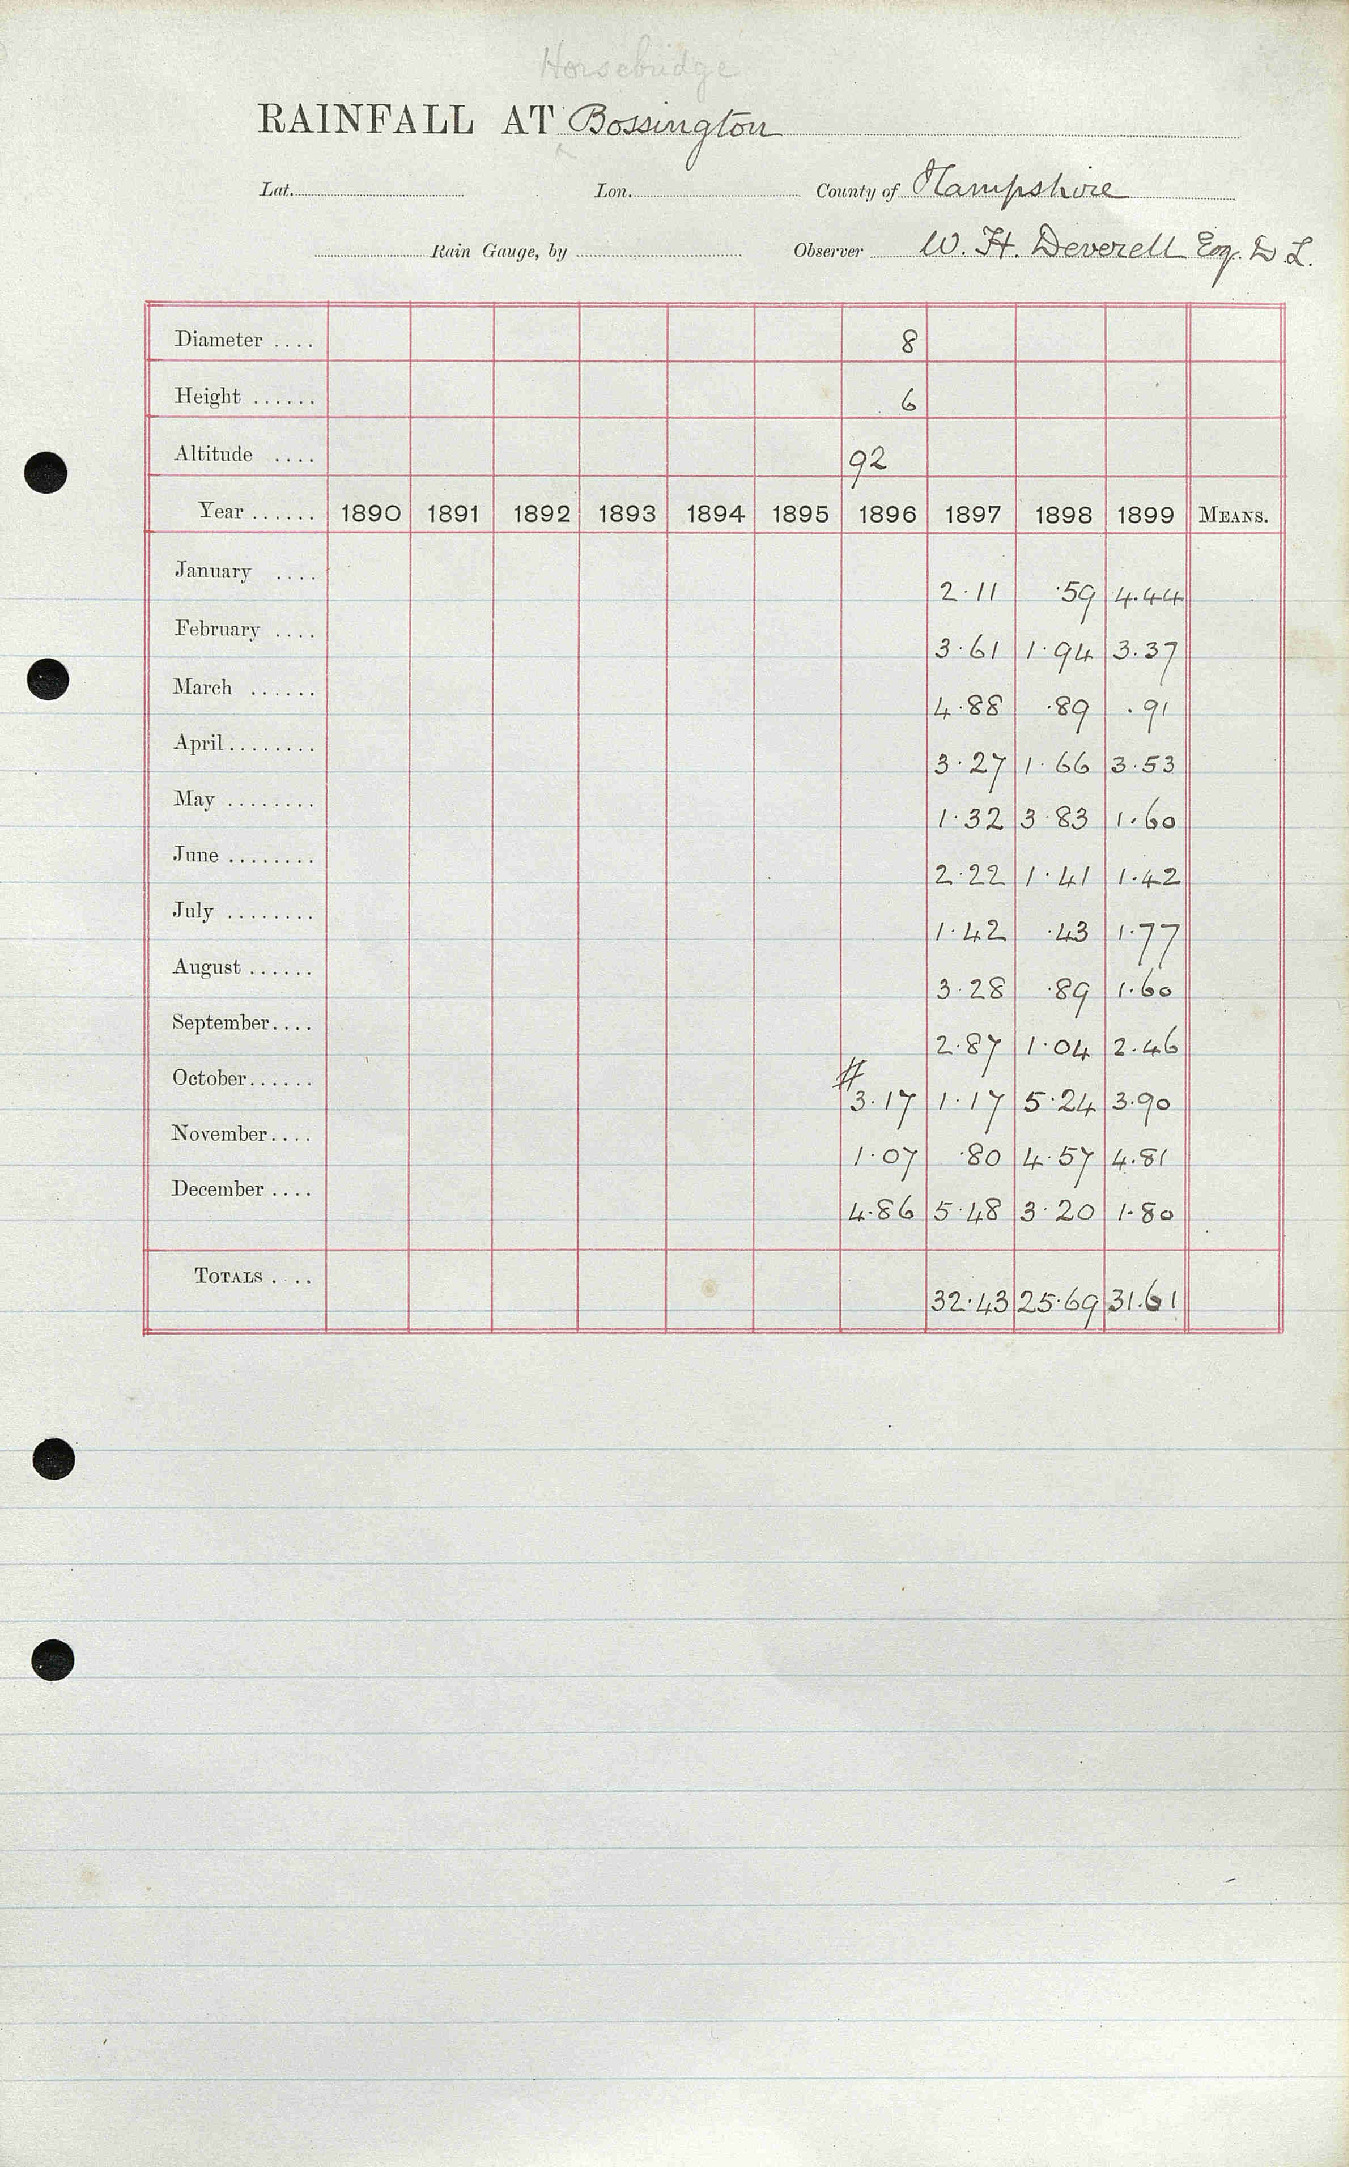 Horsebridge
RAINFALL AT Bossington
Lat. Lon. County of Hampshire
Rain Gauge, by Observer W. H. Deverell Esq. D L.
Diameter .... 8
Height ...... 6
Altitude .... 92
Year ...... 1890 1891 1892 1893 1894 1895 1896 1897 1898 1899 MEANS.
January .... 2·11 ·59 4.44
February .... 3·61 1·94 3.37
March ...... 4·88 ·89 .91
April........ 3·27 1·66 3.53
May ........ 1·32 3·83 1.60
June ........ 2·22 1·41 1.42
July ........ 1·42 ·43 1.77
August ...... 3·28 ·89 1.60
September.... 2·87 1·04 2.46
October...... # 3·17 1·17 5·24 3.90
November.... 1·07 ·80 4·57 4.81
December .... 4·86 5·48 3·20 1.80
TOTALS .... 32·43 25·69 31.61